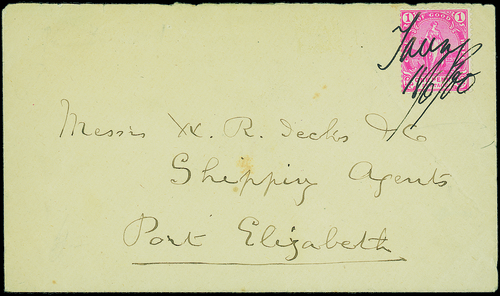 1 OF GOOD 1
Taungs
18/6/00
Messrs W. R. Jecks & Co
Shipping Agents
Port Elizabeth